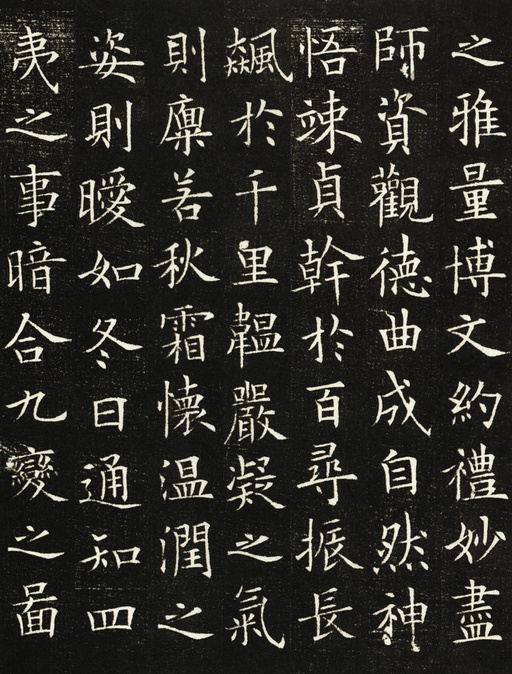 之雅量博文約禮妙盡
師資觀德曲成自然神
悟竦貞幹於百尋振長
飆於千里韞嚴凝之氣
則廩若秋霜懷温潤之
姿則曖如冬日通知四
夷之事暗合九變之啚